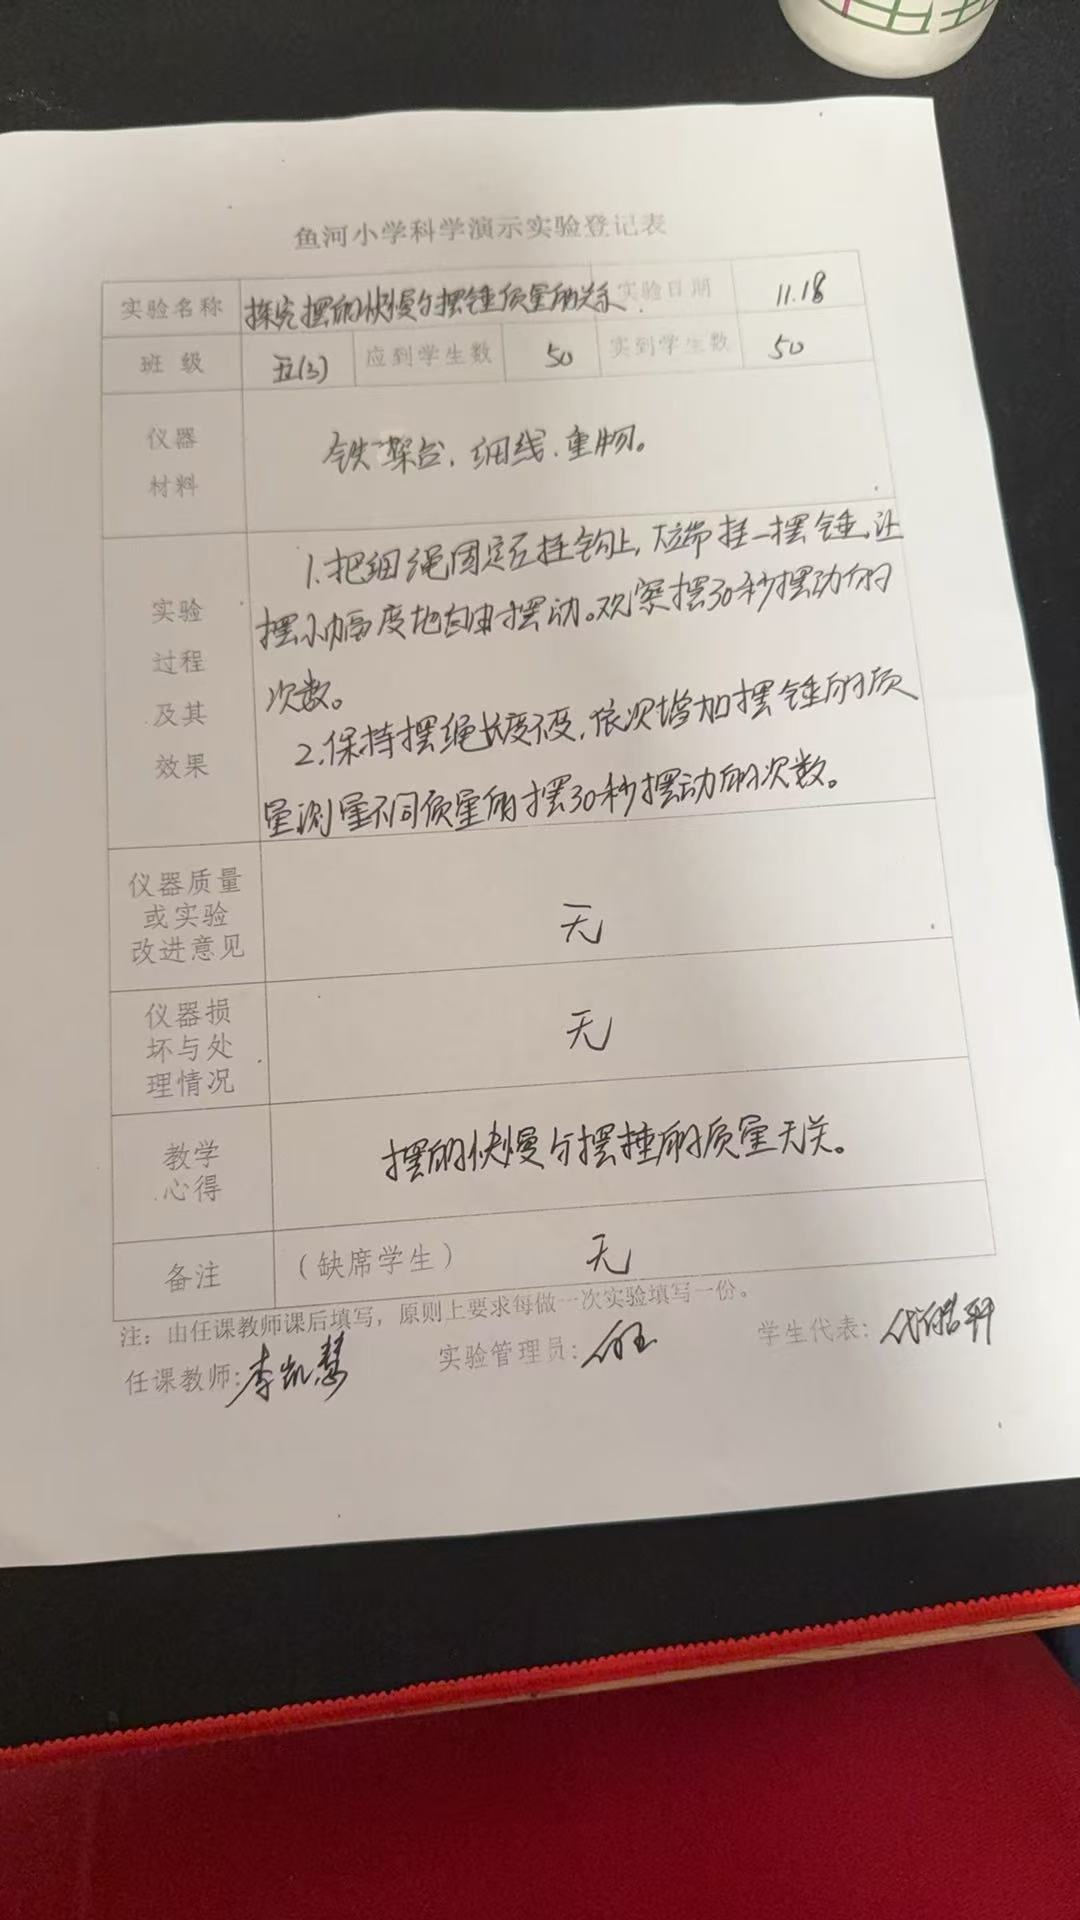 鱼河小学科学演示实验登记表
实验名称 探究摆的快慢与摆锤质量的关系 实验日期 11.18
班 级 五(3) 应到学生数 50 实到学生数 50
仪器
材料
铁架台、细线、重物。
实验
过程
及其
效果
1.把细绳固定在挂钩上, 挂一摆锤,让
摆小幅度地自由摆动。观察摆30秒摆动的
次数。
2.保持摆绳长度不变,依次增加摆锤的质
量测量不同质量的摆30秒摆动的次数。
仪器质量
或实验
改进意见
无
仪器损
坏与处
理情况
无
教学
心得
摆的快慢与摆捶的质量无关。
备注 (缺席学生) 无
注:由任课教师课后填写,原则上要求每做一次实验填写一份。
任课教师:李凯慧 实验管理员: 学生代表: